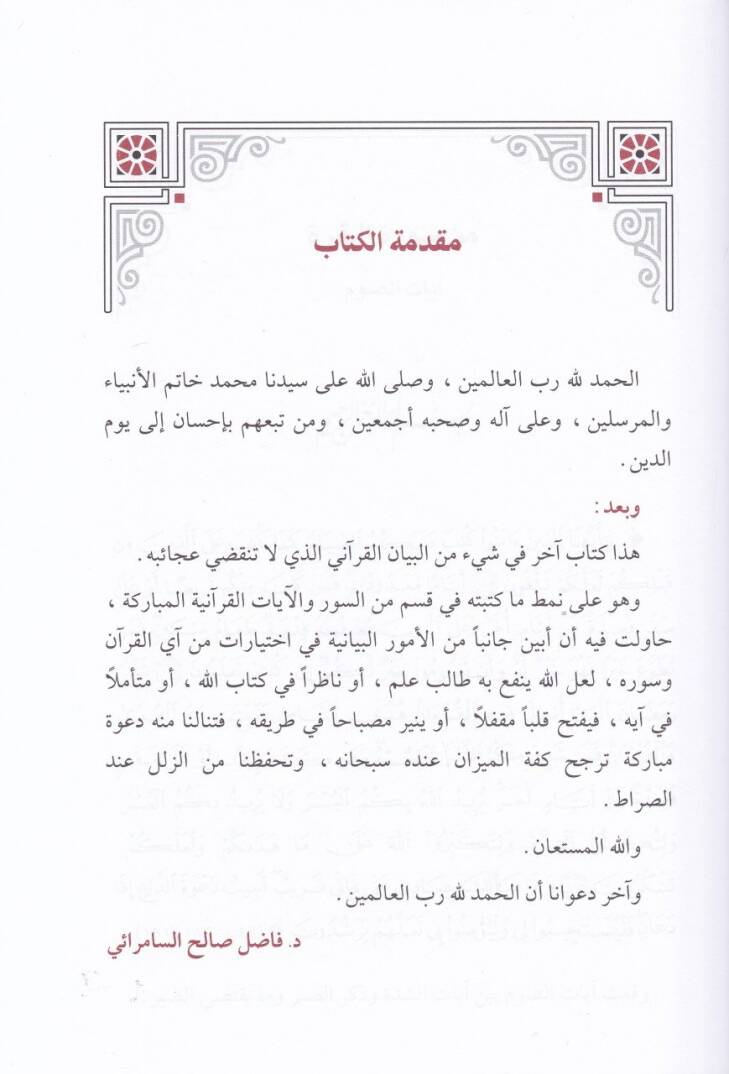 مقدمة الكتاب
الحمد لله رب العالمين ، وصلى الله على سيدنا محمد خاتم الأنبياء
والمرسلين ، وعلى آله وصحبه أجمعين ، ومن تبعهم بإحسان إلى يوم
الدين .
وبعد :
هذا كتاب آخر في شيء من البيان القرآني الذي لا تنقضي عجائبه .
وهو على نمط ما كتبته في قسم من السور والآيات القرآنية المباركة ،
حاولت فيه أن أبين جانباً من الأمور البيانية في اختيارات من آي القرآن
وسوره ، لعل الله ينفع به طالب علم ، أو ناظراً في كتاب الله ، أو متأملاً
في آيه ، فيفتح قلباً مقفلاً ، أو ينير مصباحاً في طريقه ، فتنالنا منه دعوة
مباركة ترجح كفة الميزان عنده سبحانه ، وتحفظنا من الزلل عند
الصراط .
والله المستعان .
وآخر دعوانا أن الحمد لله رب العالمين .
د. فاضل صالح السامرائي